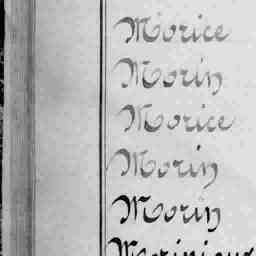 Morice
Morin
Morice
Morin
Morin